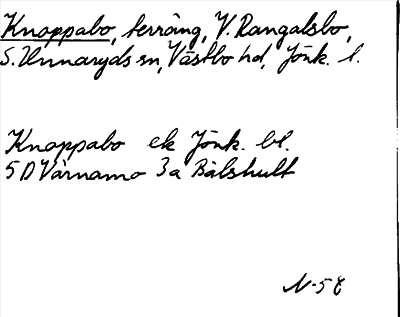 Knappabo, terräng, V. Rangalsbo,
S. Unnaryds sn, Västbo hd, Jönk. l.
Knappabo ek Jönk. bl.
5 D Värnamo 3a Bälshult
N-58